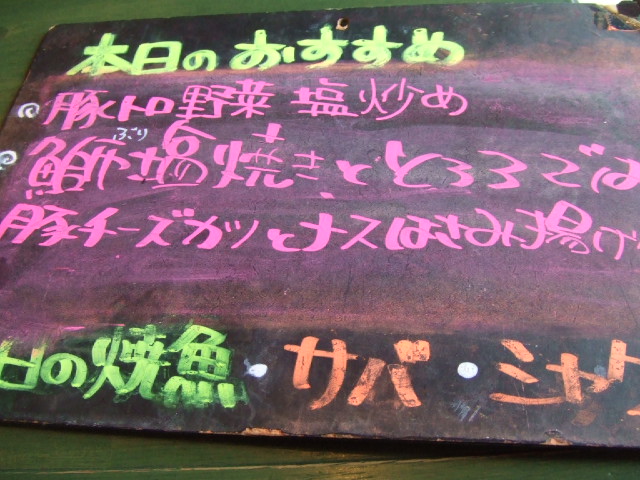 本日のおすすめ
豚トロ野菜 塩炒め
ぶり
鰤塩焼きととろろごは
豚チーズカツとナスはさみ揚げ
日の焼魚・サバ・シャケ